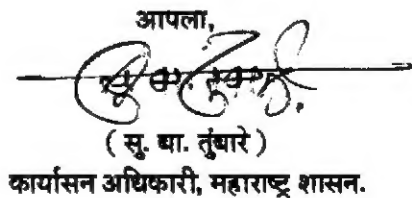 आपला,
( सु. धा. तुंबारे )
कार्यासन अधिकारी, महाराष्ट्र शासन.